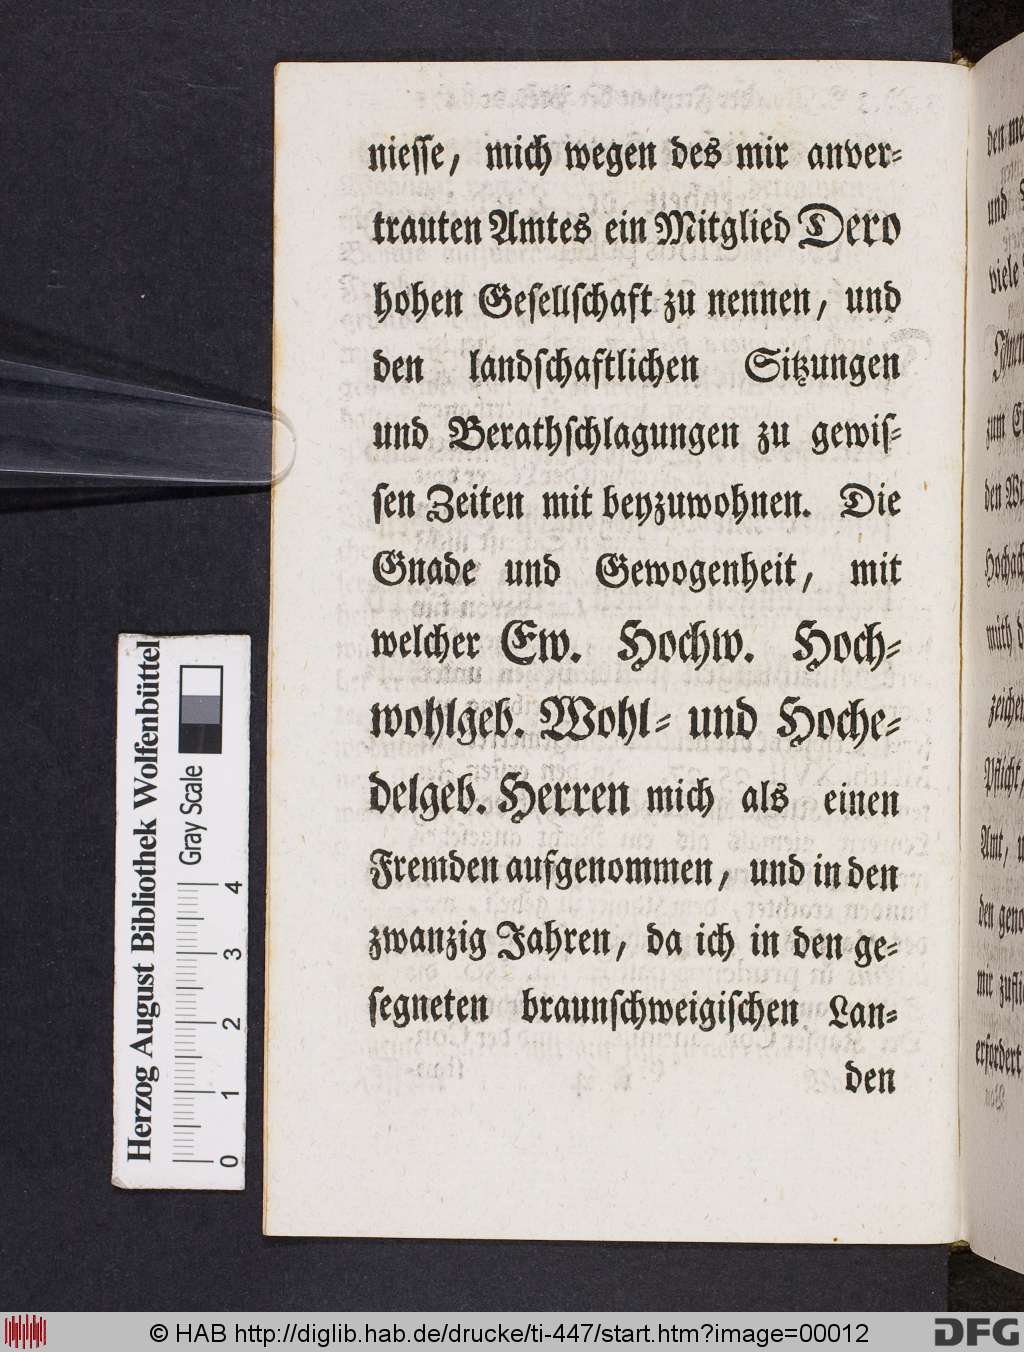 niesse, mich wegen des mir anver-
trauten Amtes ein Mitglied Dero
hohen Gesellschaft zu nennen, und
den landschaftlichen Sitzungen
und Berathschlagungen zu gewis-
sen Zeiten mit beyzuwohnen. Die
Gnade und Gewogenheit, mit
welcher Ew. Hochw. Hoch-
wohlgeb. Wohl- und Hoche-
delgeb. Herren mich als einen
Fremden aufgenommen, und in den
zwanzig Jahren, da ich in den ge-
segneten braunschweigischen Lan-
den
Herzog August Bibliothek Wolfenbüttel
Gray Scale
0 1 2 3 4
den
und
viele
zum
den
zeichen
Pflicht,
Amt,
mir
erfordert
© HAB http://diglib.hab.de/drucke/ti-447/start.htm?image=00012
DFG